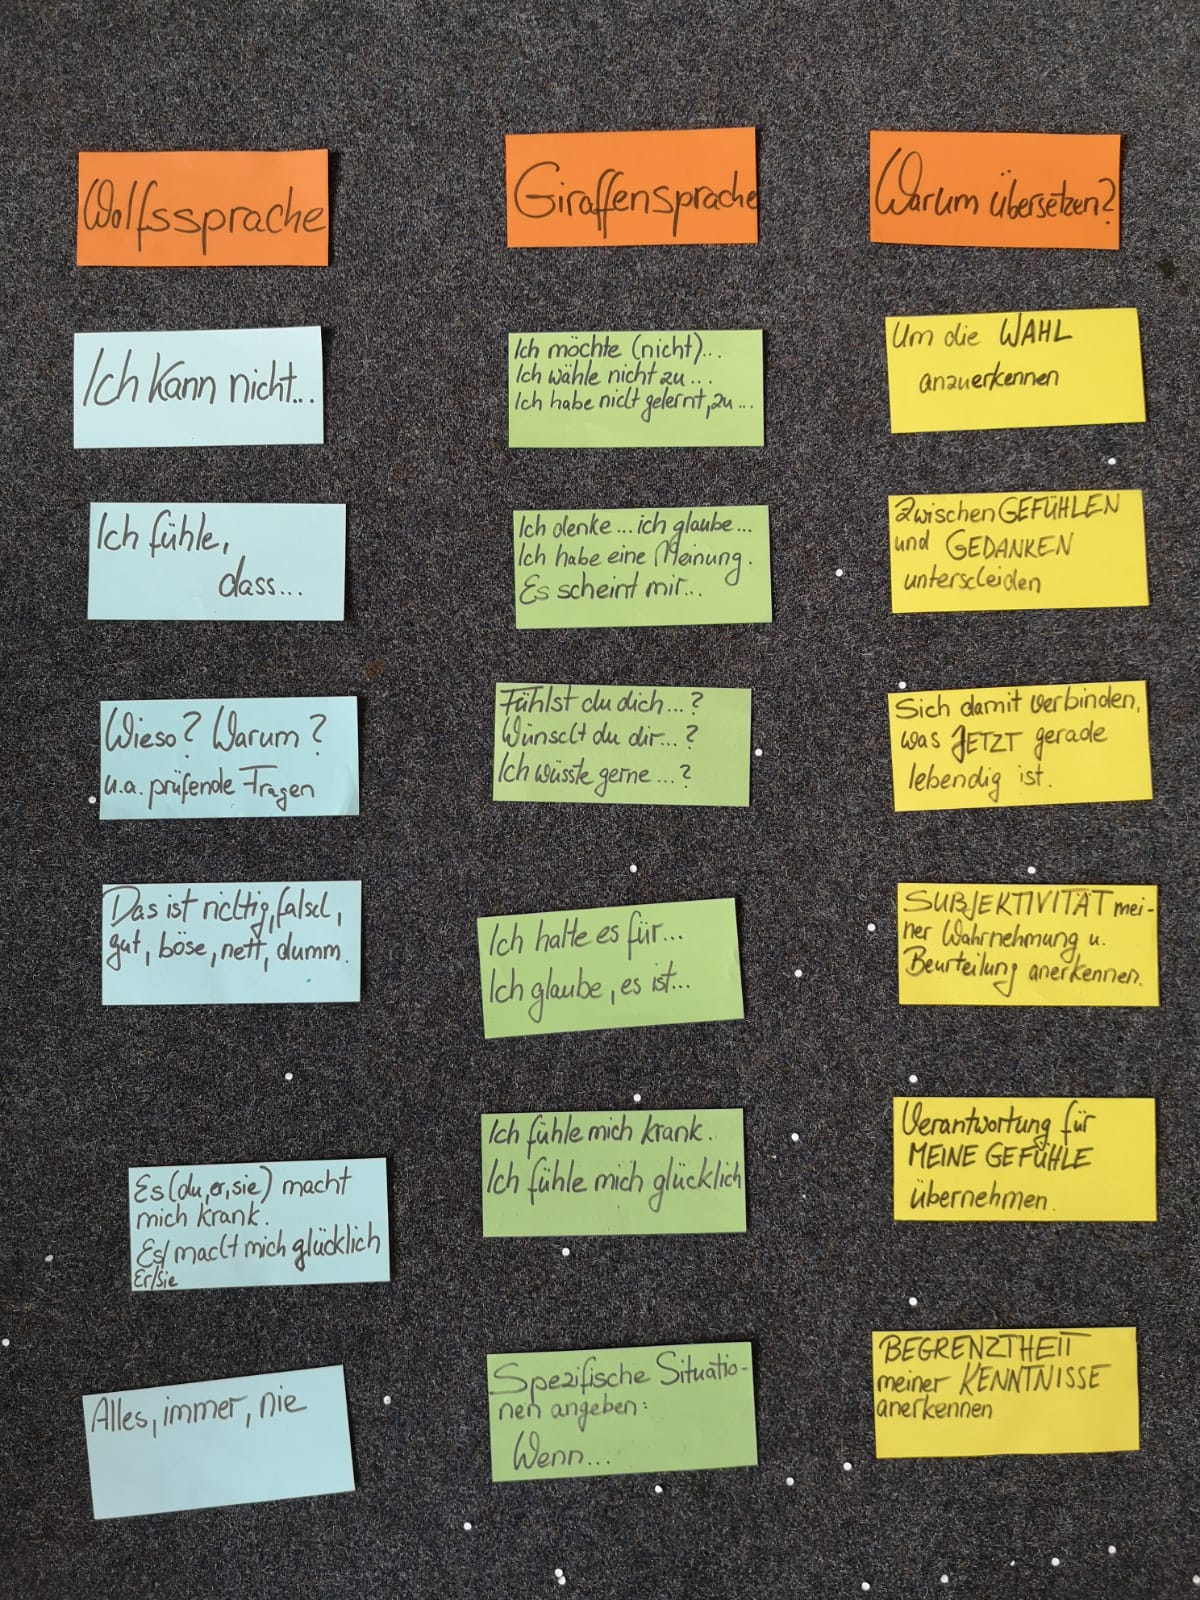 Wolfssprache
Giraffensprache
Warum übersetzen?
Ich kann nicht...
Ich möchte (nicht)...
Ich wähle nicht zu...
Ich habe nicht gelernt, zu...
Um die WAHL
anzuerkennen
Ich fühle,
dass...
Ich denke... ich glaube...
Ich habe eine Meinung.
Es scheint mir...
Zwischen GEFÜHLEN
und GEDANKEN
unterscheiden
Wieso? Warum?
u.a. prüfende Fragen
Fühlst du dich...?
Wünscht du dir...?
Ich wüsste gerne...?
Sich damit verbinden,
was JETZT gerade
lebendig ist.
Das ist richtig, falsch,
gut, böse, nett, dumm.
Ich halte es für...
Ich glaube, es ist...
SUBJEKTIVITÄT mei-
ner Wahrnehmung u.
Beurteilung anerkennen.
Es (du, er, sie) macht
mich krank.
Es/ macht mich glücklich
Er/sie
Ich fühle mich krank.
Ich fühle mich glücklich
Verantwortung für
MEINE GEFÜHLE
übernehmen.
Alles, immer, nie
Spezifische Situatio-
nen angeben:
Wenn...
BEGRENZTHEIT
meiner KENNTNISSE
anerkennen